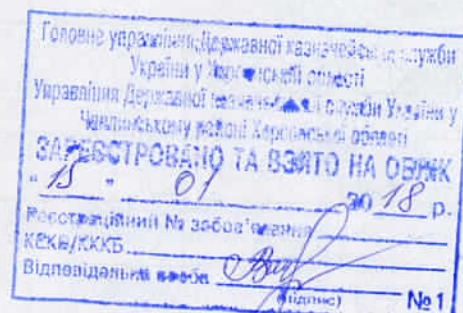 Головне управління Державної казначейської служби
України у Херсонській області
Управління Державної казначейської служби України у
Чаплинському районі Херсонської області
ЗАРЕЄСТРОВАНО ТА ВЗЯТО НА ОБЛІК
"15" 01 2018 р.
Реєстраційний № зобов'язання
КЕКВ/КККБ
Відповідальна особа
(підпис) № 1